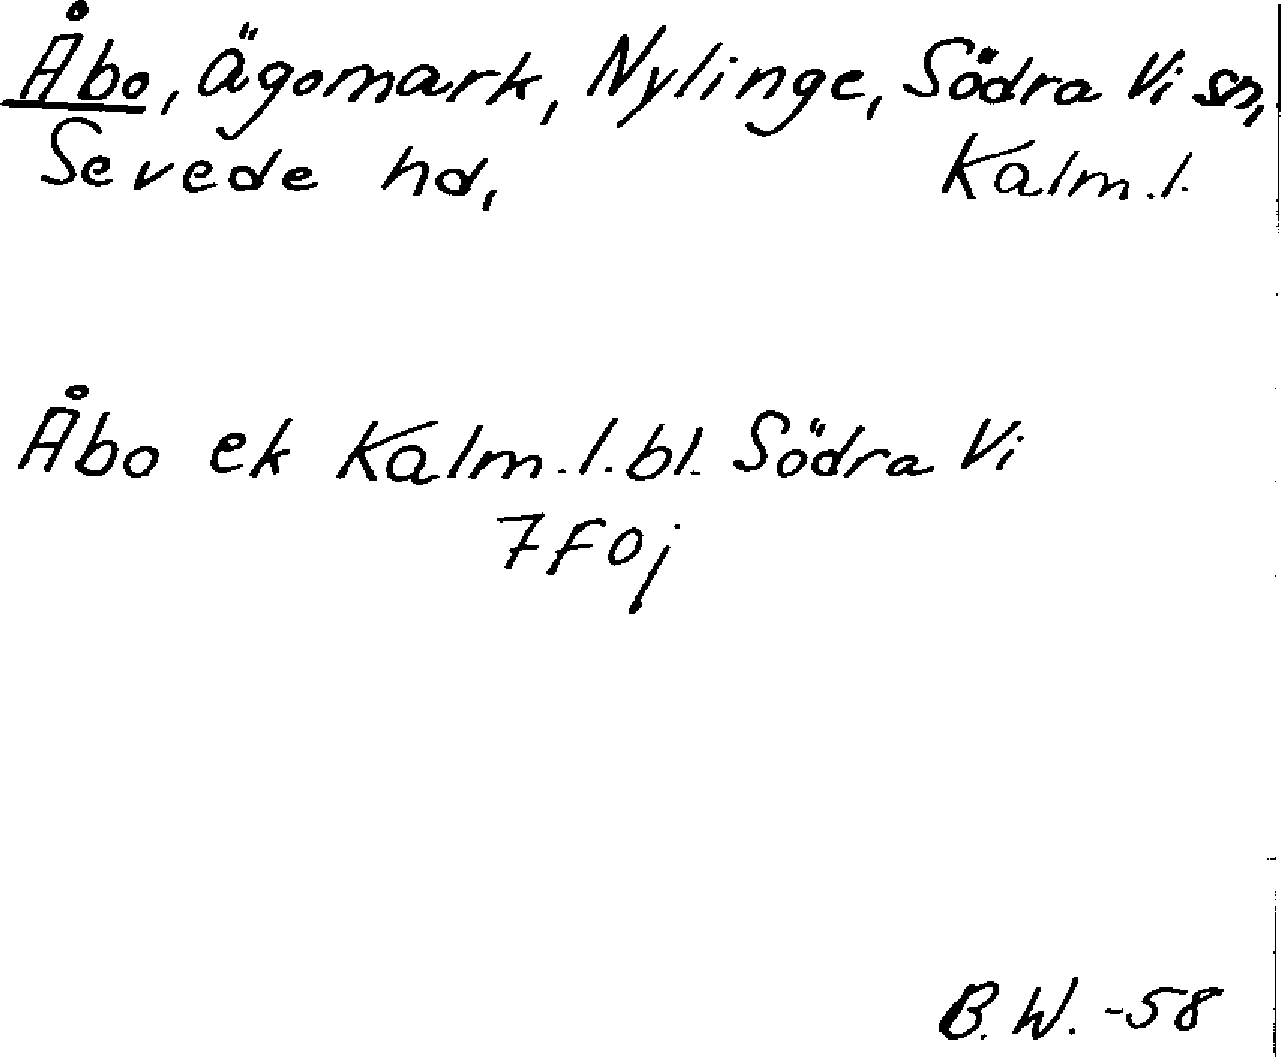 Åbo, ägomark, Nylinge, Södra Vi sn,
Sevede hd, Kalm.l.
Åbo ek Kalm.l.bl. Södra Vi
7F0j
B.W.-58